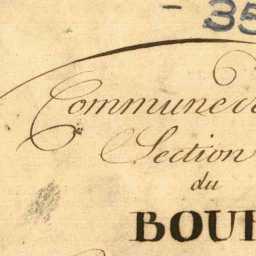 - 35
Commune d
Section
du
BOU